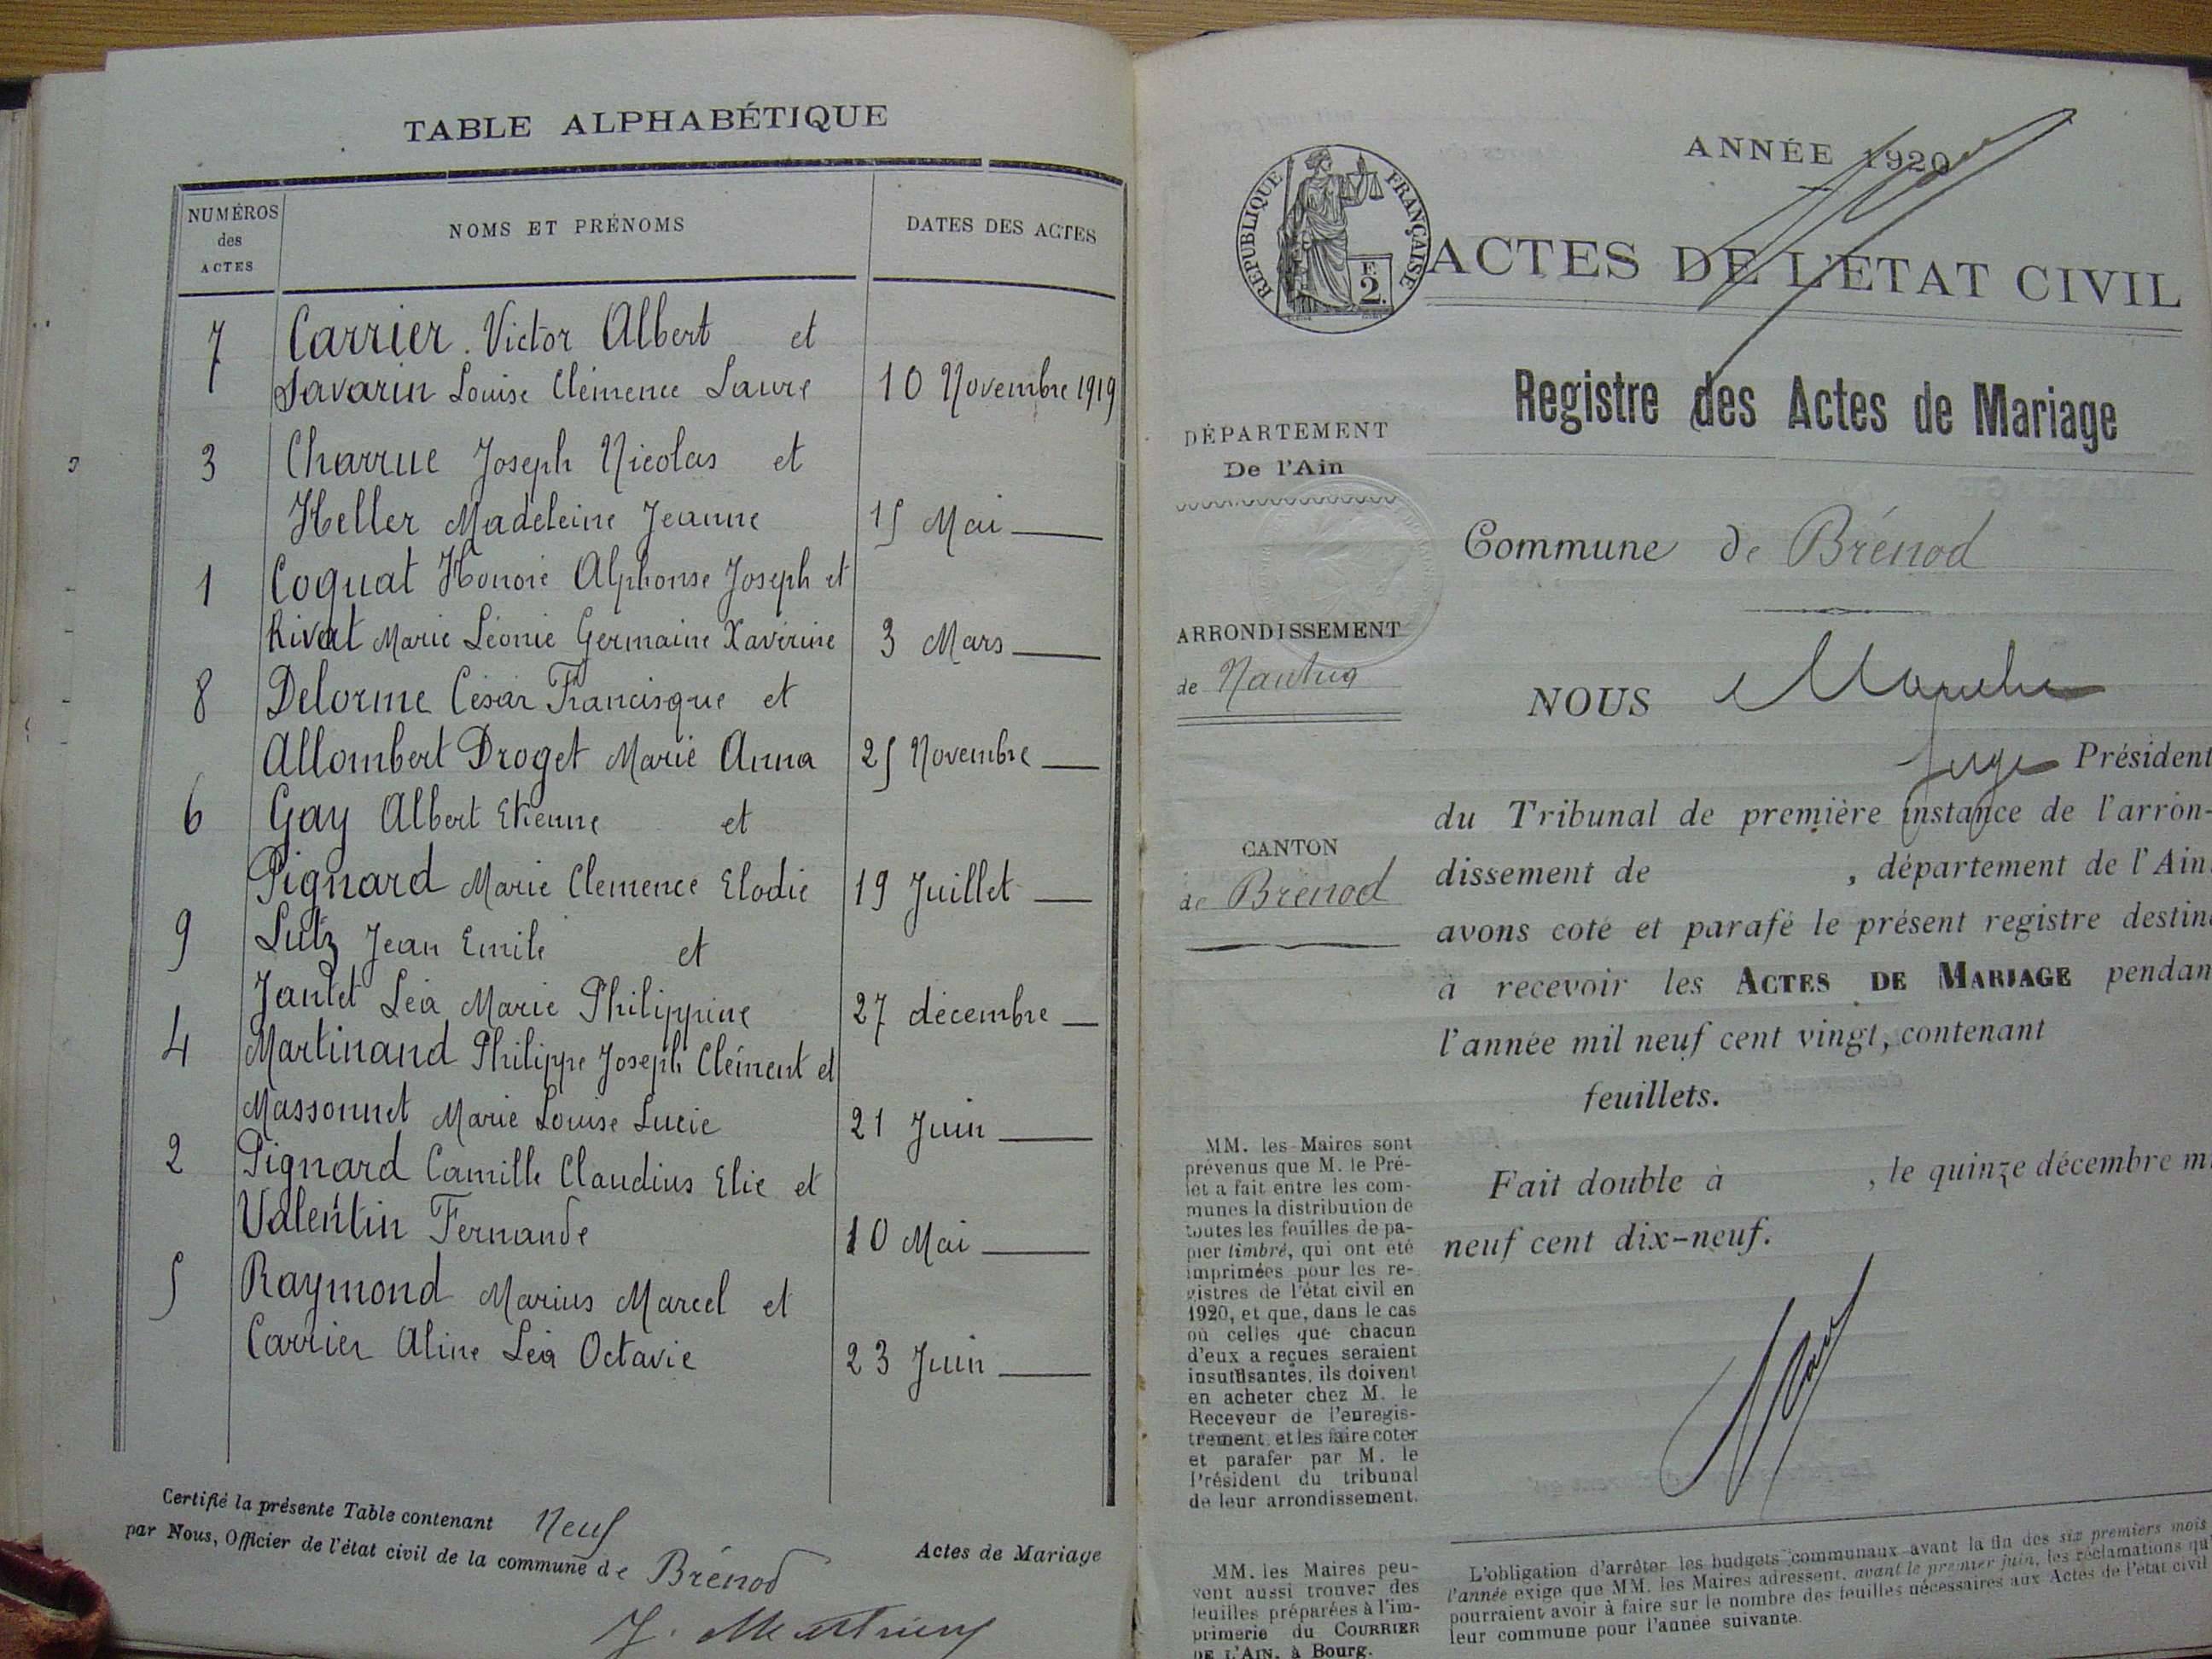 TABLE ALPHABÉTIQUE
NUMÉROS
des
ACTES
NOMS ET PRÉNOMS
DATES DES ACTES
7 Carrier Victor Albert et
Savarin Louise Clémence Laure 10 Novembre 1919
3 Charrue Joseph Nicolas et
Heller Madeleine Jeanne 15 Mai
1 Coquat Honoré Alphonse Joseph et
Rivat Marie Léonie Germaine Xavérine 3 Mars
8 Delorme César Francisque et
Allombert Droget Marie Anna 25 Novembre
6 Gay Albert Etienne et
Pignard Marie Clemence Elodie 19 Juillet
9 Lutz Jean Emile et
Jantet Léa Marie Philippine 27 décembre
4 Martinand Philippe Joseph Clément et
Massonnet Marie Louise Lucie 21 Juin
2 Pignard Camille Claudius Elie et
Valentin Fernande 10 Mai
5 Raymond Marius Marcel et
Carrier Aline Léa Octavie 23 Juin
Certifié la présente Table contenant Neuf Actes de Mariage
par Nous, Officier de l'état civil de la commune de Brénod
ANNÉE 1920
RÉPUBLIQUE FRANÇAISE
F.
2.
ACTES DE L'ÉTAT CIVIL
Registre des Actes de Mariage
DÉPARTEMENT
De l'Ain
Commune de Brénod
ARRONDISSEMENT
de Nantua
CANTON
de Brénod
NOUS
Juge Président
du Tribunal de première instance de l'arron-
dissement de , département de l'Ain
avons coté et parafé le présent registre destin
à recevoir les ACTES DE MARIAGE pendan
l'année mil neuf cent vingt, contenant
feuillets.
Fait double à , le quinze décembre m
neuf cent dix-neuf.
MM. les Maires sont
prévenus que M. le Pré-
fet a fait entre les com-
munes la distribution de
toutes les feuilles de pa-
pier timbré, qui ont été
imprimées pour les re-
gistres de l'état civil en
1920, et que, dans le cas
où celles que chacun
d'eux a reçues seraient
insuffisantes, ils doivent
en acheter chez M. le
Receveur de l'enregis-
trement, et les faire coter
et parafer par M. le
Président du tribunal
de leur arrondissement.
MM. les Maires peu-
vent aussi trouver des
feuilles préparées à l'im-
primerie du COURRIER
DE L'AIN, à Bourg.
L'obligation d'arrêter les budgets communaux avant la fin des six premiers mois
l'année exige que MM. les Maires adressent, avant le premier juin, les réclamations qu'
pourraient avoir à faire sur le nombre des feuilles nécessaires aux Actes de l'état civil
leur commune pour l'année suivante.